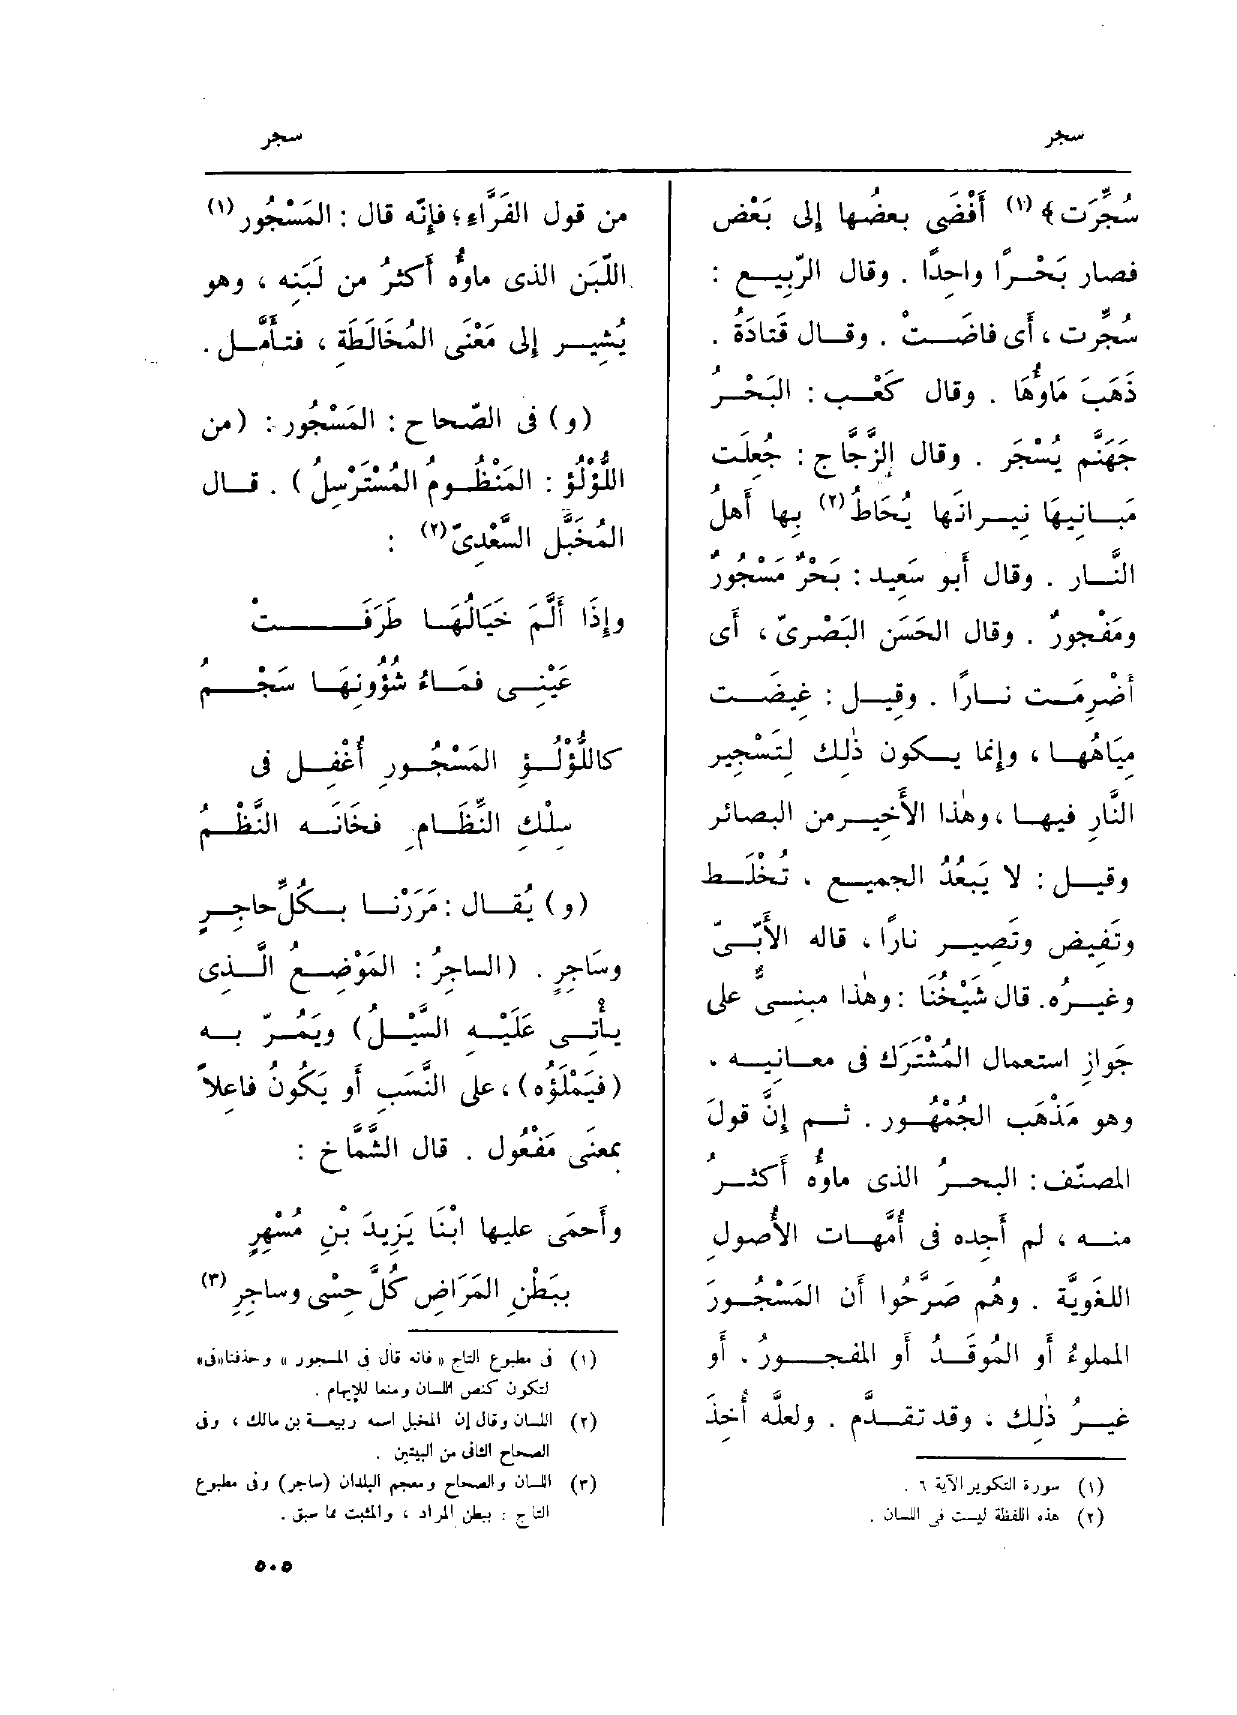 سجر
سجر
سُجِّرَت ﴾ (١) أَفْضَى بعضُها إلى بَعْض
فصار بَحْرًا واحِدًا . وقال الرّبِيع :
سُجِّرت ، أَى فاضَتْ . وقال قَتادَةُ .
ذَهَبَ مَاوُهَا . وقال كَعْب : البَحْرُ
جَهَنَّم يُسْجَر . وقال الزَّجّاج : جُعِلَت
مَبانِيهَا نِيرانَها يُحَاطُ (٢) بِها أَهلُ
النَّار . وقال أَبو سَعِيد : بَحْرٌ مَسْجُورٌ
ومَفْجورٌ . وقال الحَسَن البَصْرِىّ ، أَى
أُضْرِمَت نارًا . وقِيل : غِيضَت
مِيَاهُها ، وإِنما يكون ذٰلك لِتَسْجِير
النَّارِ فيها ، وهٰذا الأَخير من البصائر
وقيل : لا يَبعُدُ الجميع . تُخْلَط
وتَفِيض وتَصِير نارًا ، قاله الأَبّىّ
وغيرُه. قال شَيْخُنَا : وهٰذا مبنىٌّ على
جواز استعمال المُشْتَرَك فى معانيه .
وهو مَذْهَب الجُمْهُور . ثم إِنَّ قولَ
المصنّف : البحرُ الذى ماوُه أَكثرُ
منه ، لم أَجِده فى أُمَّهات الأُصولِ
اللغويَّة . وهُم صَرَّحُوا أَن المَسْجُورَ
المملوءُ أَو المُوقَدُ أَو المفجورُ . أَو
غيرُ ذٰلك ، وقد تقدَّم . ولعلَّه أُخِذَ
(١) سورة التكوير الآية ٦ .
(٢) هذه اللفظة ليست فى اللسان .
من قول الفَرَّاء ؛ فإِنّه قال : المَسْجُور (١)
اللّبَن الذى ماوُه أَكثرُ من لَبَنِه ، وهو
يُشِير إِلى مَعْنَى المُخَالَطَةِ ، فتأَمَّل .
(و) فى الصّحاح : المَسْجُور : (من
اللُّؤْلُؤِ : المَنْظُومُ المُسْتَرْسِلُ) . قال
المُخَبَّل السَّعْدِىّ (٢) :
وإِذَا أَلَّمَ خَيَالُهَا طَرَفَتْ
عَيْنِى فمَاءُ شُؤُونِهَا سَجْمُ
كاللُّؤْلُؤِ المَسْجُورِ أُغْفِل فى
سِلْكِ النِّظَامِ فخَانَه النَّظْمُ
(و) يُقَال : مَرَرْنا بكُلِّ حاجِرٍ
وسَاجِرٍ . (الساجِرُ : المَوْضِعُ الَّذِى
يأْتى عَلَيْه السَّيْلُ) ويَمُرّ به
(فيَمْلَؤُه) ، على النَّسَبِ أَو يَكُونُ فاعِلاً
بمعنَى مَفْعُول . قال الشَّمّاخ :
وأَحمَى عليها ابْنَا يَزِيدَ بْنِ مُسْهِرٍ
بِبَطْنِ المَرَاضِ كُلَّ حِسْىٍ وساجِرِ (٣)
(١) فى مطبوع التاج « فانه قال فى المسجور » وحذفنا «فى»
لتكون كنص اللسان ومنعا للإيهام .
(٢) اللسان وقال إن المخبل اسمه ربيعة بن مالك ، وفى
الصحاح الثانى من البيتين .
(٣) اللسان والصحاح ومعجم البلدان (ساجر) وفى مطبوع
التاج : ببطن المراد ، والمثبت مما سبق .
٥٠٥